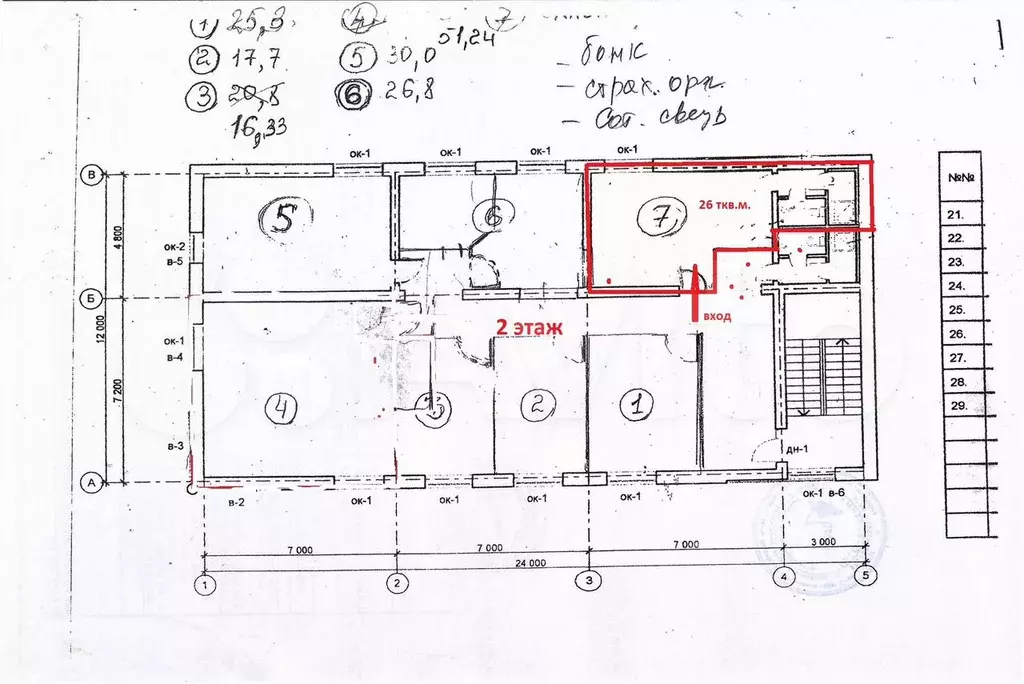 1 25,3
4
7
51,24
2 17,7
5 30,0
- банк
3 20,8
6 26,8
- страх. орг.
16,33
- Сот. связь
ок-1 ок-1 ок-1 ок-1
В
№№
5 6 7 26 ткв.м.
21.
4 800
22.
ок-2
в-5
23.
24.
Б
вход
2 этаж
25.
12 000
26.
ок-1
в-4
27.
7 200
28.
4 3 2 1
29.
в-3
дн-1
А
в-2 ок-1 ок-1 ок-1 ок-1 ок-1 в-6
7 000 7 000 7 000 3 000
24 000
1 2 3 4 5